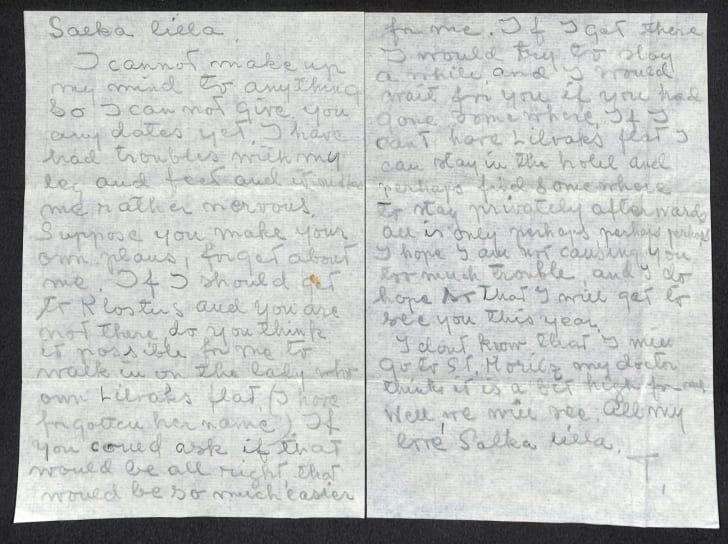 Salka lilla.
I cannot make up
my mind to anything
so I can not give you
any dates yet. I have
had troubles with my
leg and feet and it makes
me rather nervous.
Suppose you make your
own plans, forget about
me. If I should get
to Klosters and you are
not there do you think
it possible for me to
walk in on the lady who
own Litvaks flat, (I have
forgotten her name). If
you could ask if that
would be all right, that
would be so much easier
for me. If I get there
I would try to stay
a while, and I would
wait for you if you had
gone somewhere. If I
can't have Litvaks flat I
can stay in the hotel and
perhaps find somewhere
to stay privately afterwards
all is only perhaps perhaps perhaps
I hope I am not causing you
too much trouble, and I do
hope that I will get to
see you this year.
I dont know that I will
go to St. Moritz my doctor
thinks it is a bit high for me
Well we will see. All my
love Salka lilla.
T.